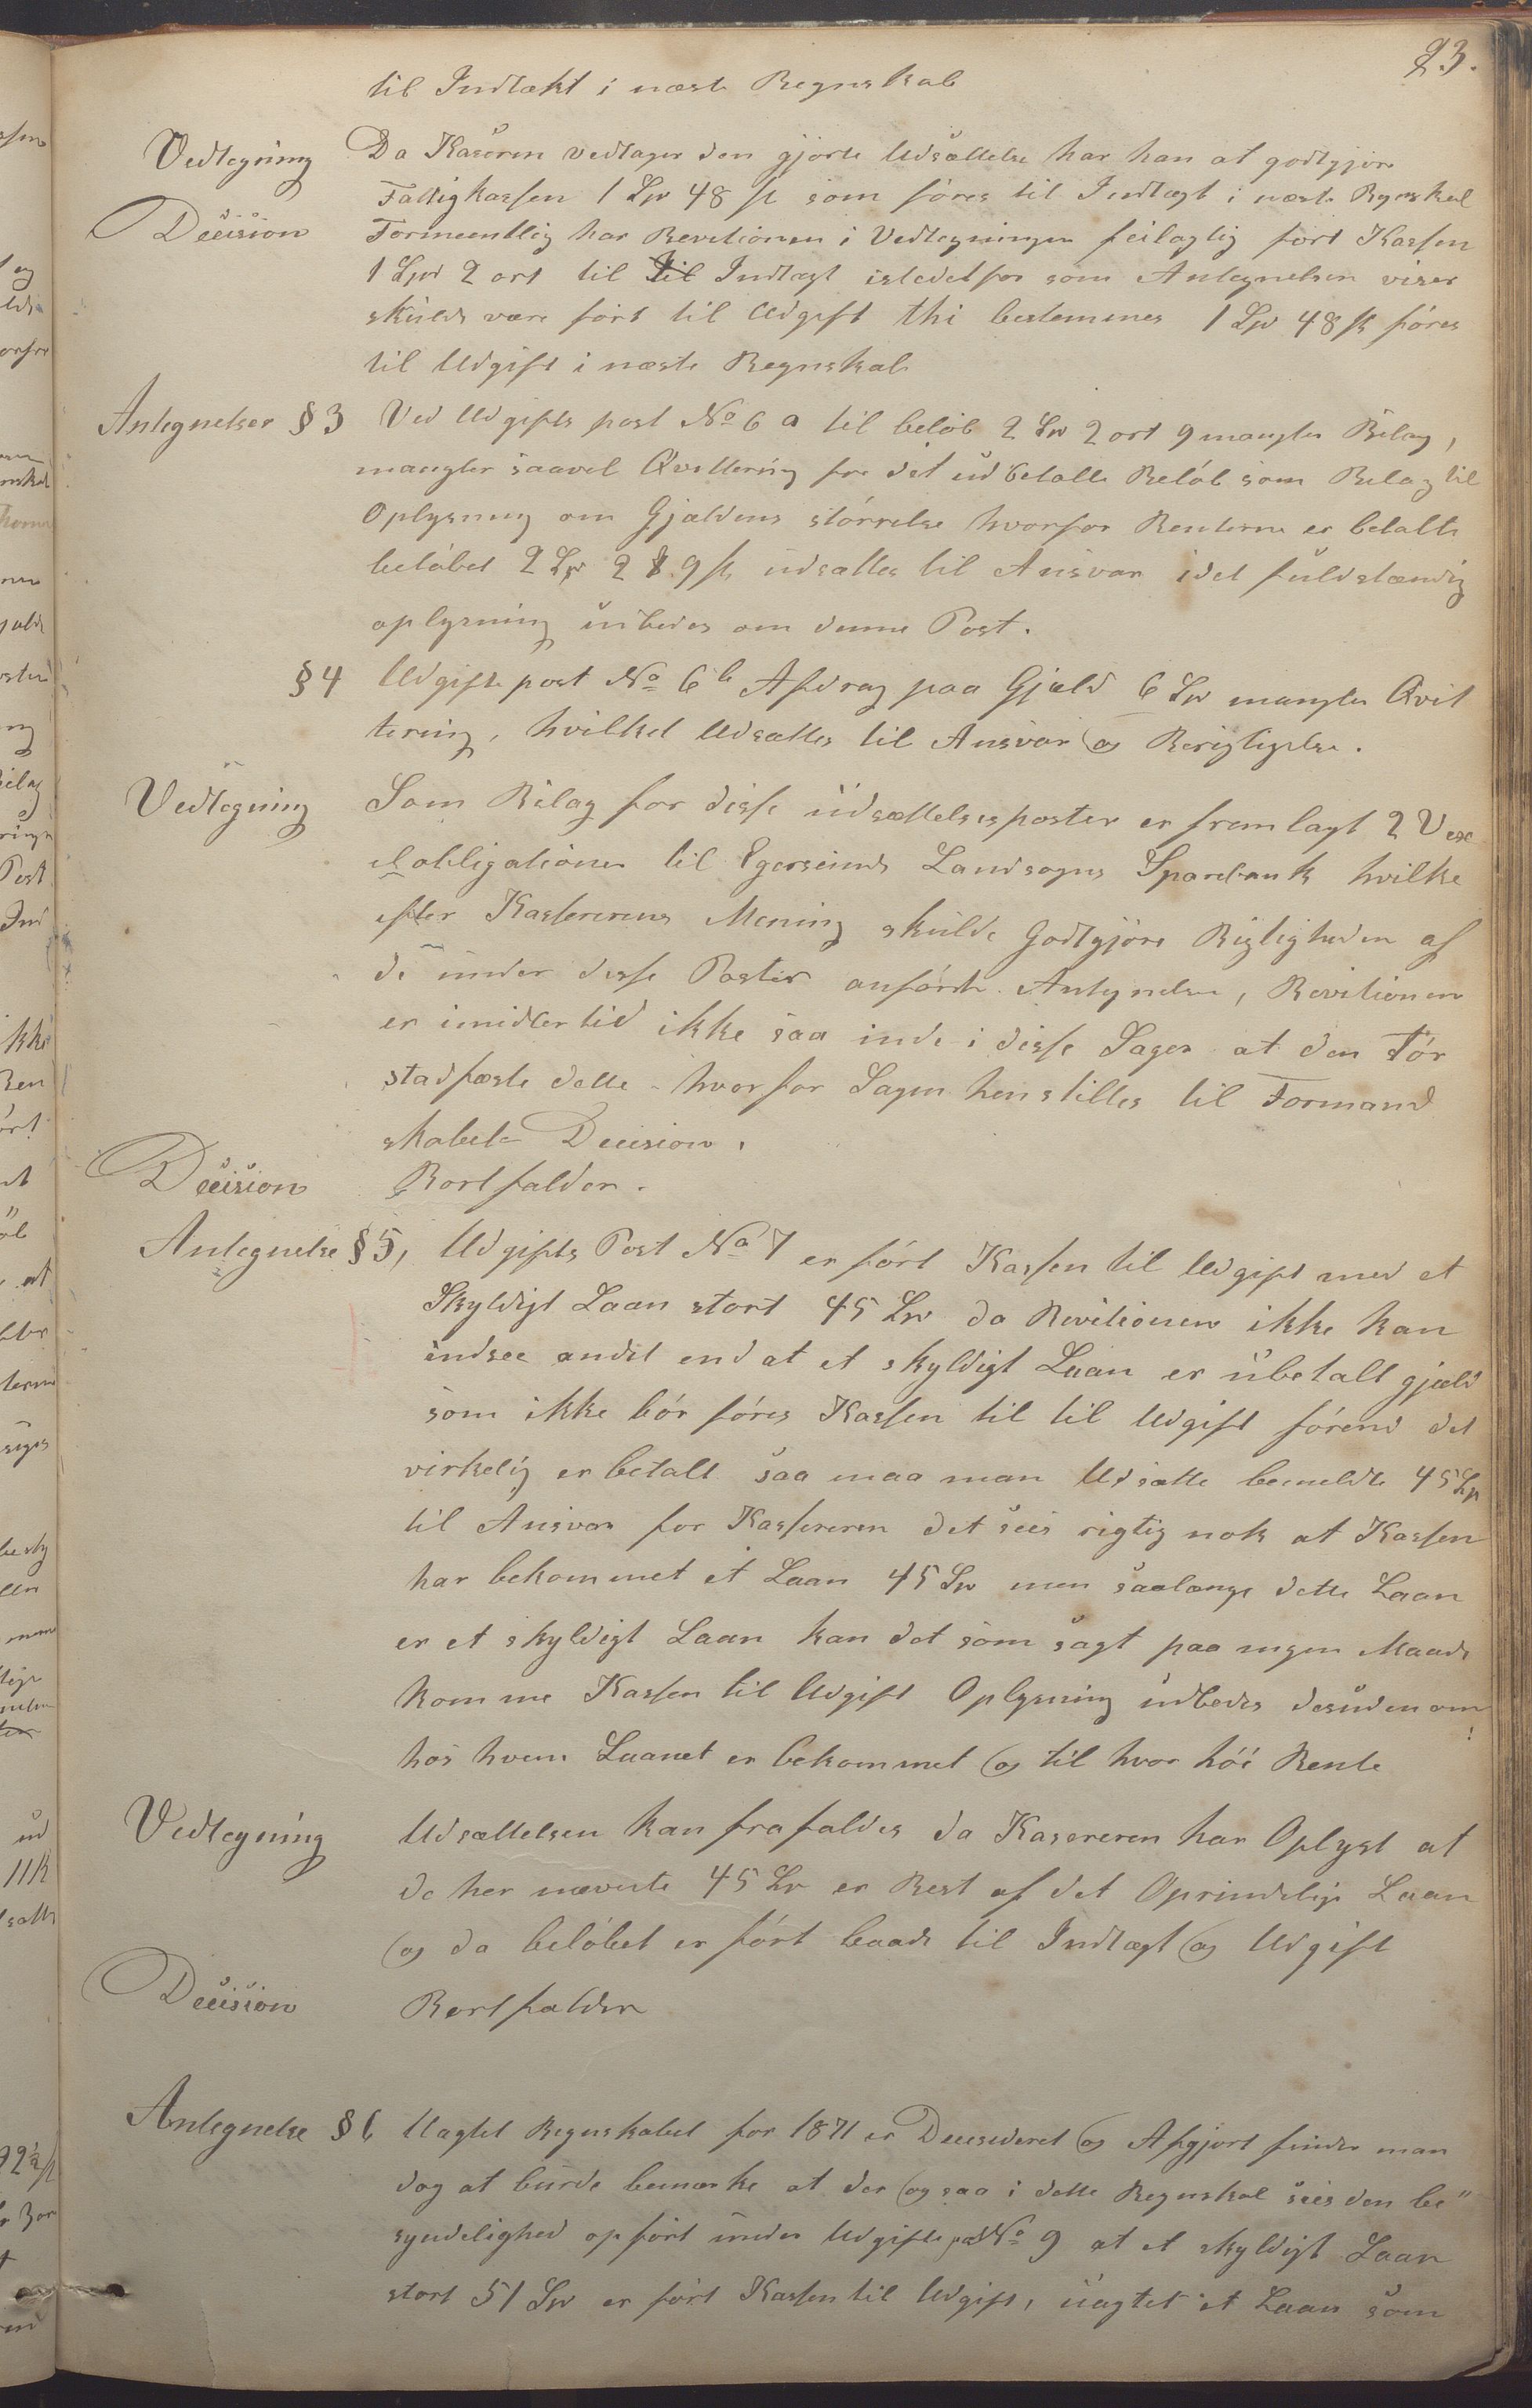 23.
til Indtækt i næste Regnskab
Vedtegning Da Kaseren vedtager den gjorte Udsættelse har han at godtgjøre
Fattigkassen 1 Spd 48 sk som føres til Indtægt i næste Regnskab
Decision Formeentlig har Revitionen i Vedtegningen feilagtig ført Kassen
1 Spd 2 ort til til Indtægt istedetfor som Antegnelsen viser
skulde være ført til Udgift thi bestemmes 1 Spd 48 sk føres
til Udgift i næste Regnskab
Antegnelser § 3 Ved Udgifts post No 6 a til beløb 2 Spd 2 ort 9 mangler Bilag,
mangler saavel Qvittering for det udbetalte Beløb som Bilag til
Oplysning om Gjældens størrelse hvorfor Renterne er betalte
beløbet 2 Spd 2 9 sk udsættes til Ansvar idet fuldstændig
oplysning udbedes om denne Post.
§ 4 Udgifts post No 6 b Afdrag paa Gjæld 6 Spd mangler Qvit
tering, hvilket Udsættes til Ansvar og Berigtigelse.
Vedtegning Som Bilag for disse udsættelsesposter er fremlagt 2 Vex
elobligationer til Egersunds Landsogns Sparebank hvilke
efter Kassererens Mening skulde Godtgjøre Rigtigheden af
de under disse Poster anførte Antegnelser, Revitionen
er imidlertid ikke saa inde i disse Sager at den Tør
stadfæste dette - hvorfor Sagen henstilles til Formand
skabets Decision.
Decision Bortfalder.
Antegnelse § 5, Udgifts Post No 7 er ført Kassen til Udgift med et
Skyldigt Laan stort 45 Spd da Revitionen ikke kan
indsee andet end at et skyldigt Laan er ubetalt gjæld
som ikke bør føres Kassen til til Udgift førend det
virkelig er betalt saa maa man Udsætte bemeldte 45 Spd
til Ansvar for Kassereren det sees rigtig nok at Kassen
har bekommet et Laan 45 Spd men saalænge dette Laan
er et skyldigt Laan kan det som sagt paa ingen Maade
komme Kassen til Udgift Oplysning udbedes desuden om
hos hvem Laanet er bekommet og til hvor høi Rente
Vedtegning Udsættelsen kan frafaldes da Kasereren har Oplyst at
de her nævnte 45 Spd er Rest af det Oprindelige Laan
og da beløbet er ført baade til Indtægt og Udgift
Decision Bortfalder
Antegnelse § 6 Uagtet Regnskabet for 1871 er Decideret og Afgjort finder man
dog at burde bemærke at der ogsaa i dette Regnskab sees den be"
syndelighed opført under Udgifts post No 9 at et skyldigt Laan
stort 51 Spd er ført Kassen til Udgift, uagtet et Laan som